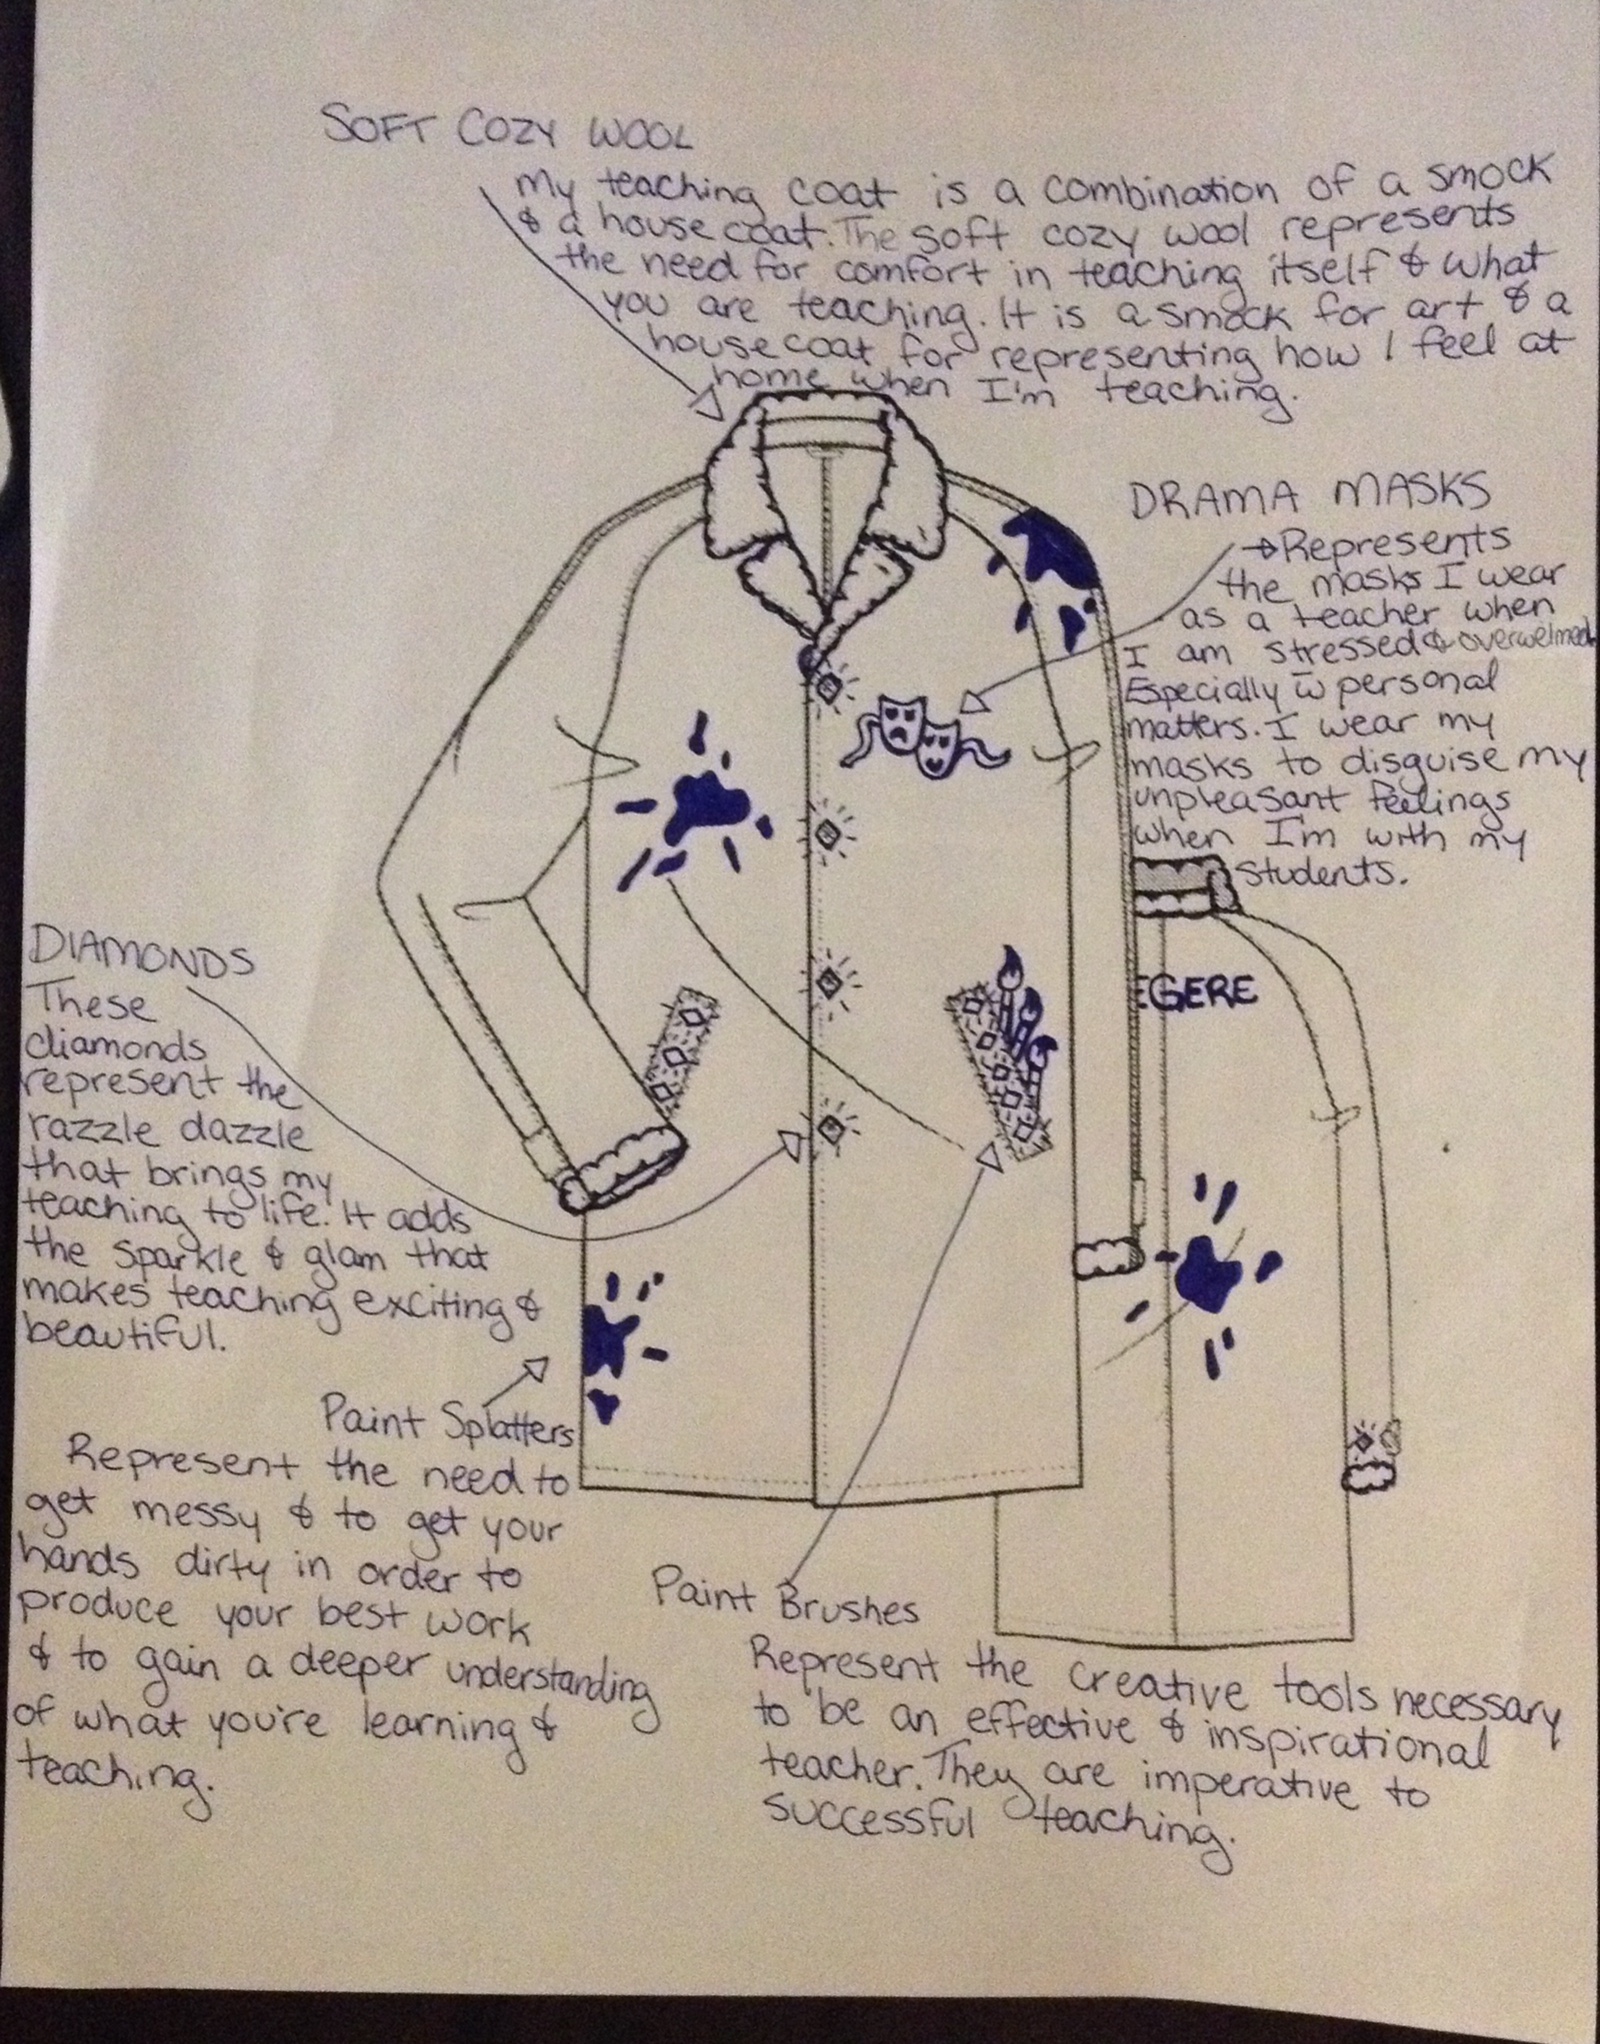 SOFT COZY WOOL
My teaching coat is a combination of a smock
& a house coat. The soft cozy wool represents
the need for comfort in teaching itself & what
you are teaching. It is a smock for art & a
house coat for representing how I feel at
home when I'm teaching.
DRAMA MASKS
→Represents
the masks I wear
as a teacher when
I am stressed & overwelmed
Especially w̄ personal
matters. I wear my
masks to disguise my
unpleasant feelings
when I'm with my
students.
EGERE
DIAMONDS
These
diamonds
represent the
razzle dazzle
that brings my
teaching to life. It adds
the sparkle & glam that
makes teaching exciting &
beautiful.
Paint Splatters
Represent the need to
get messy & to get your
hands dirty in order to
produce your best work
& to gain a deeper understanding
of what you're learning &
teaching.
Paint Brushes
Represent the creative tools necessary
to be an effective & inspirational
teacher. They are imperative to
successful teaching.